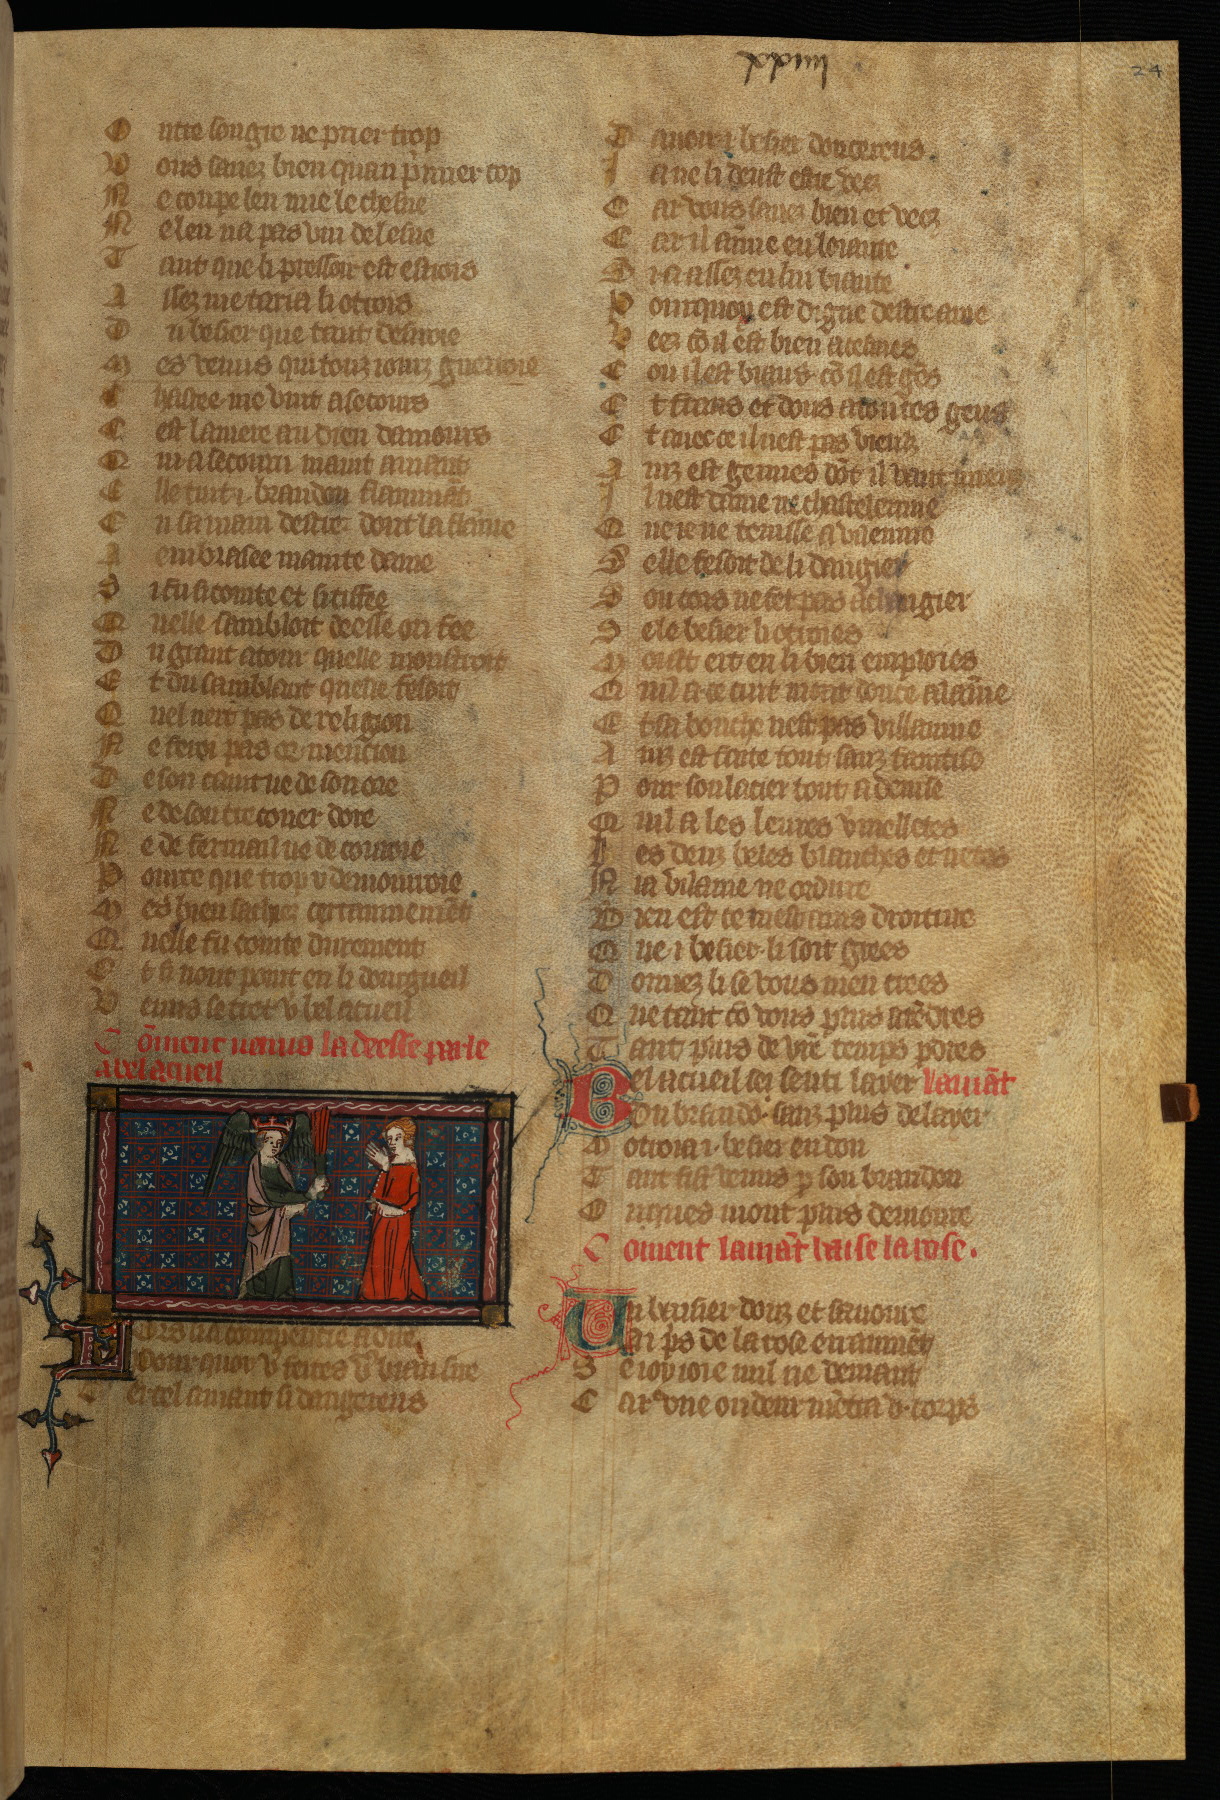 xxiiii
24
O utre songie ne prier trop
V ous sauez bien quau p̃mier cop
N e coupe len mie le chesne
N e len na pas vin de lesne
T ant que li pressoir est estrois
A ssez me taria li otrois
D u besier que tant desiroie
M es venus qui touz iours guerroie
C hastee me vint a secours
C est la mere au dieu damours
Q ui a secouru maint amant
E lle tint .i. brandon flammãt
E n sa main destre dont la flame
A embrasee mainte dame
S i fu si cointe et si tiffee
Q uelle sambloit deesse ou fee
D u grant atour quelle monstroit
E t du samblant quelle fesoit
Q uel nert pas de religion
N e feroi pas or mencion
D e son caint ne de son ore
N e de son treçouer dore
N e de fermail ne de couroie
P ource que trop y demourroie
M es bien sachiez certainnemẽt
Q uelle fu cointe durement
E t si nont point en li dorgueil
V enus se tret v̾ bel acueil
C õment uenus la deesse parle
a bel acueil
pourquoy v̾ feites
cel amant si dangereus
D auoir .i. besier doucereus
I a ne li deust estre veez
C ar vous sauez bien et veez
C ar il aime en loiaute
D i a assez en lui biaute
P ourquoy est digne destre ame
V eez cõ il est bien acesmes
C ou il est biaus cõ il est gẽs
E t frans et dous a toutes gens
E t auec ce il nest pas vieulz
A inz est gennes dõt il vaut mieus
I l nest dame ne chastelainne
Q ue ie ne tenisse a vilennie
S elle fesoit de li dangier
S ou cors ne fet pas a changier
S e le besier li otroies
M oult ert en li bien emploies
Q uil a ce cuit mout douce alainne
E t sa bouche nest pas villainne
A inz est faite tout sanz faintise
P our soulacier tout a deuise
Q uil a les leures vmelletes
L es denz beles blanches et netes
N i a vilainie ne ordure
B ien est ce mest auis droiture
Q ue .i. besier li soit grees
D onnez li se vous men crees
Q ue tant cõ vous plus atẽdres
T ant plus de vr̃e temps p̱dres
B el acueil sei senti layer lamãt
Du brandõ sanz plus delayer
M otroia .i. besier en don
T ant fist venus p̱ son brandon
O nques niont plus demoure
C oment lamãt baise la rose.
U n besier douz et sauoure
Ai p̱s de la rose erraumẽt
S e ioy ioie nul ne demant
C ar vne oudeur mẽtra ou corps